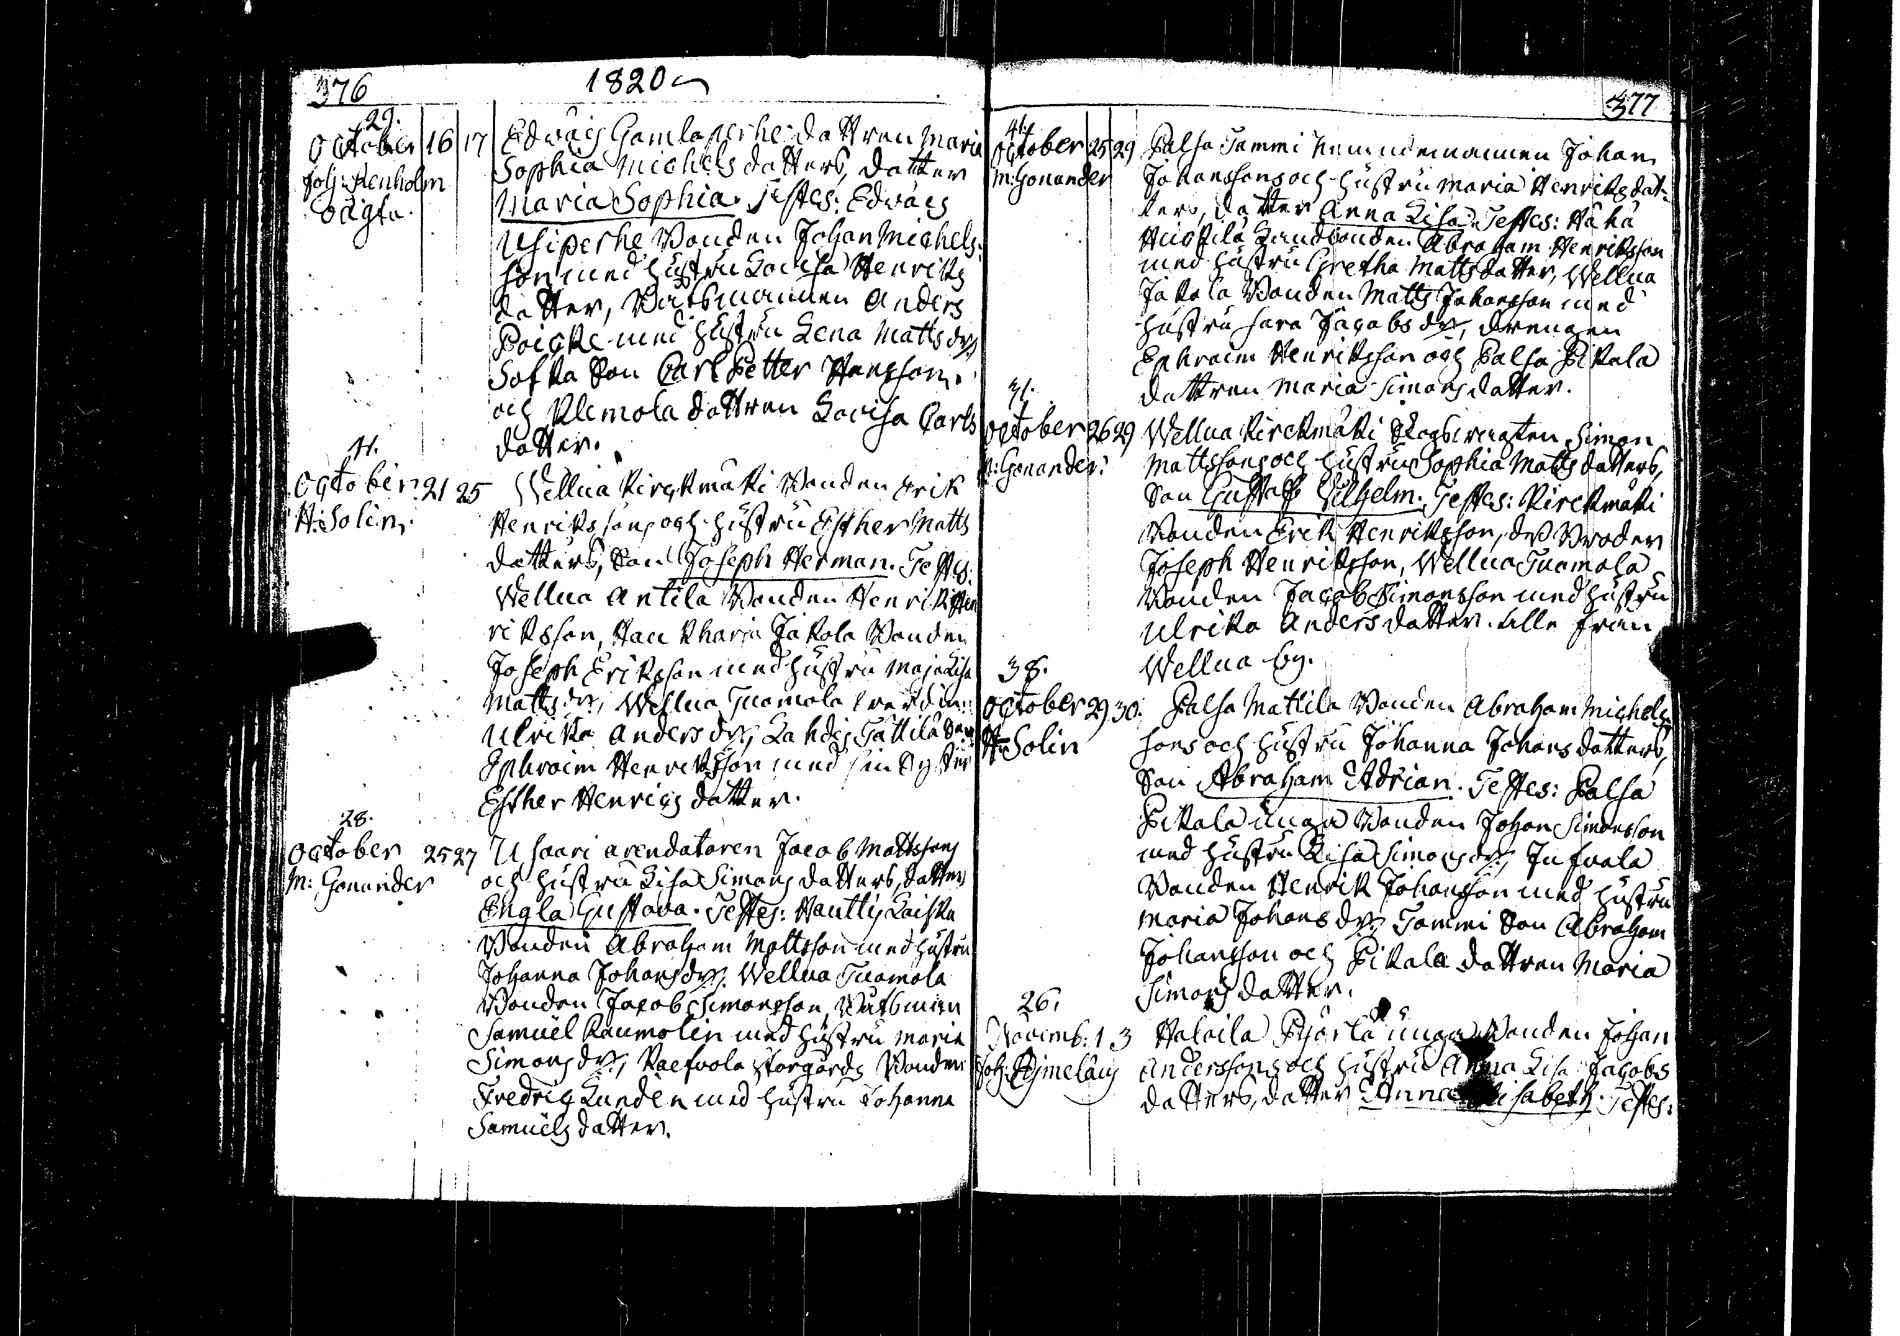 376
1820
29.
October 16 17 Edvägs Gamlaperhe dottren Maria
Joh: Renholm Sophia Michels dotters, dotter
Maria Sophia. Testes: Edvägs
Usiperhe Bonden Johan Michels-
son med hustru Lovisa Henriks
dotter, Båtsmannen Anders
Poicke med hustru Lena Matts dr,
Sofka Son Carl Petter Hansson
och Klemola dottren Lovisa Carls
dotter.
41.
October 21 25 Wellua Kirckmäki Bonden Erik
H: Solin. Henrikssons och hustru Esther Matts
dotters, Son Joseph Herman. Testes:
Wellua Antila Bonden Henrik Hen
riksson, Jakola Bonden
Joseph Eriksson med hustru Maja Lisa
Matts dr, Wellua Tuomola
Ulrika Anders dr, Lahdis Tättilä Son
Ephraim Henriksson med sin Syster
Esther Henrics dotter.
28.
October 25 27 Usaari arendatoren Jacob Mattssons
M: Gonander och hustru Lisa Simons dotters, dotter
Engla Gustava. Testes: Kauttis Laiska
Bonden Abraham Mattsson med hustru
Johanna Johans dr, Wellua Tuomola
Bonden Jacob Simonsson, Båtsman
Samuel Raumolin med hustru Maria
Simons dr, Raefvola Storgårds Bonden
Fredric Lundén med hustru Johanna
Samuels dotter.
377
41.
October 25 29 Palsa Tammi Nemndemannen Johan
M: Gonander Johanssons och hustru Maria Henriks dot-
ters, dotter Anna Lisa. Testes:
Landbonden Abraham Henriksson
med hustru Gretha Matts dotter, Wellua
Jakola Bonden Matts Johansson med
hustru Sara Jacobs dr, drengen
Ephraim Henriksson och Palsa Pitola
dottren Maria Simons dotter.
31.
October 26 29 Wellua Kirckmäki Skogsvagten Simon
M: Gonander. Mattssons och hustru Sophia Matts dotters,
Son Gustaff Vilhelm. Testes: Kirckmäki
Bonden Erik Henriksson, des Broder
Joseph Henriksson, Wellua Tuomola
Bonden Jacob Simonsson med hustru
Ulrika Anders dotter. alle från
Wellua by.
38.
October 29 30. Palsa Mattila Bonden Abraham Michels
H: Solin sons och hustru Johanna Johans dotters,
Son Abraham Adrian. Testes: Palsa
Pitola unga Bonden Johan Simonsson
med hustru Lisa Simons dr, Jufvala
Bonden Henrik Johansson med hustru
Maria Johans dr, Tammi Son Abraham
Johansson och Pitola dottren Maria
Simons dotter.
26.
Novemb: 1 3 Haloila Pjorla unga Bonden Johan
Joh: Hjmelaus Anderssons och hustru Anna Lisa Jacobs
dotters, dotter Anna Elisabeth. Testes: